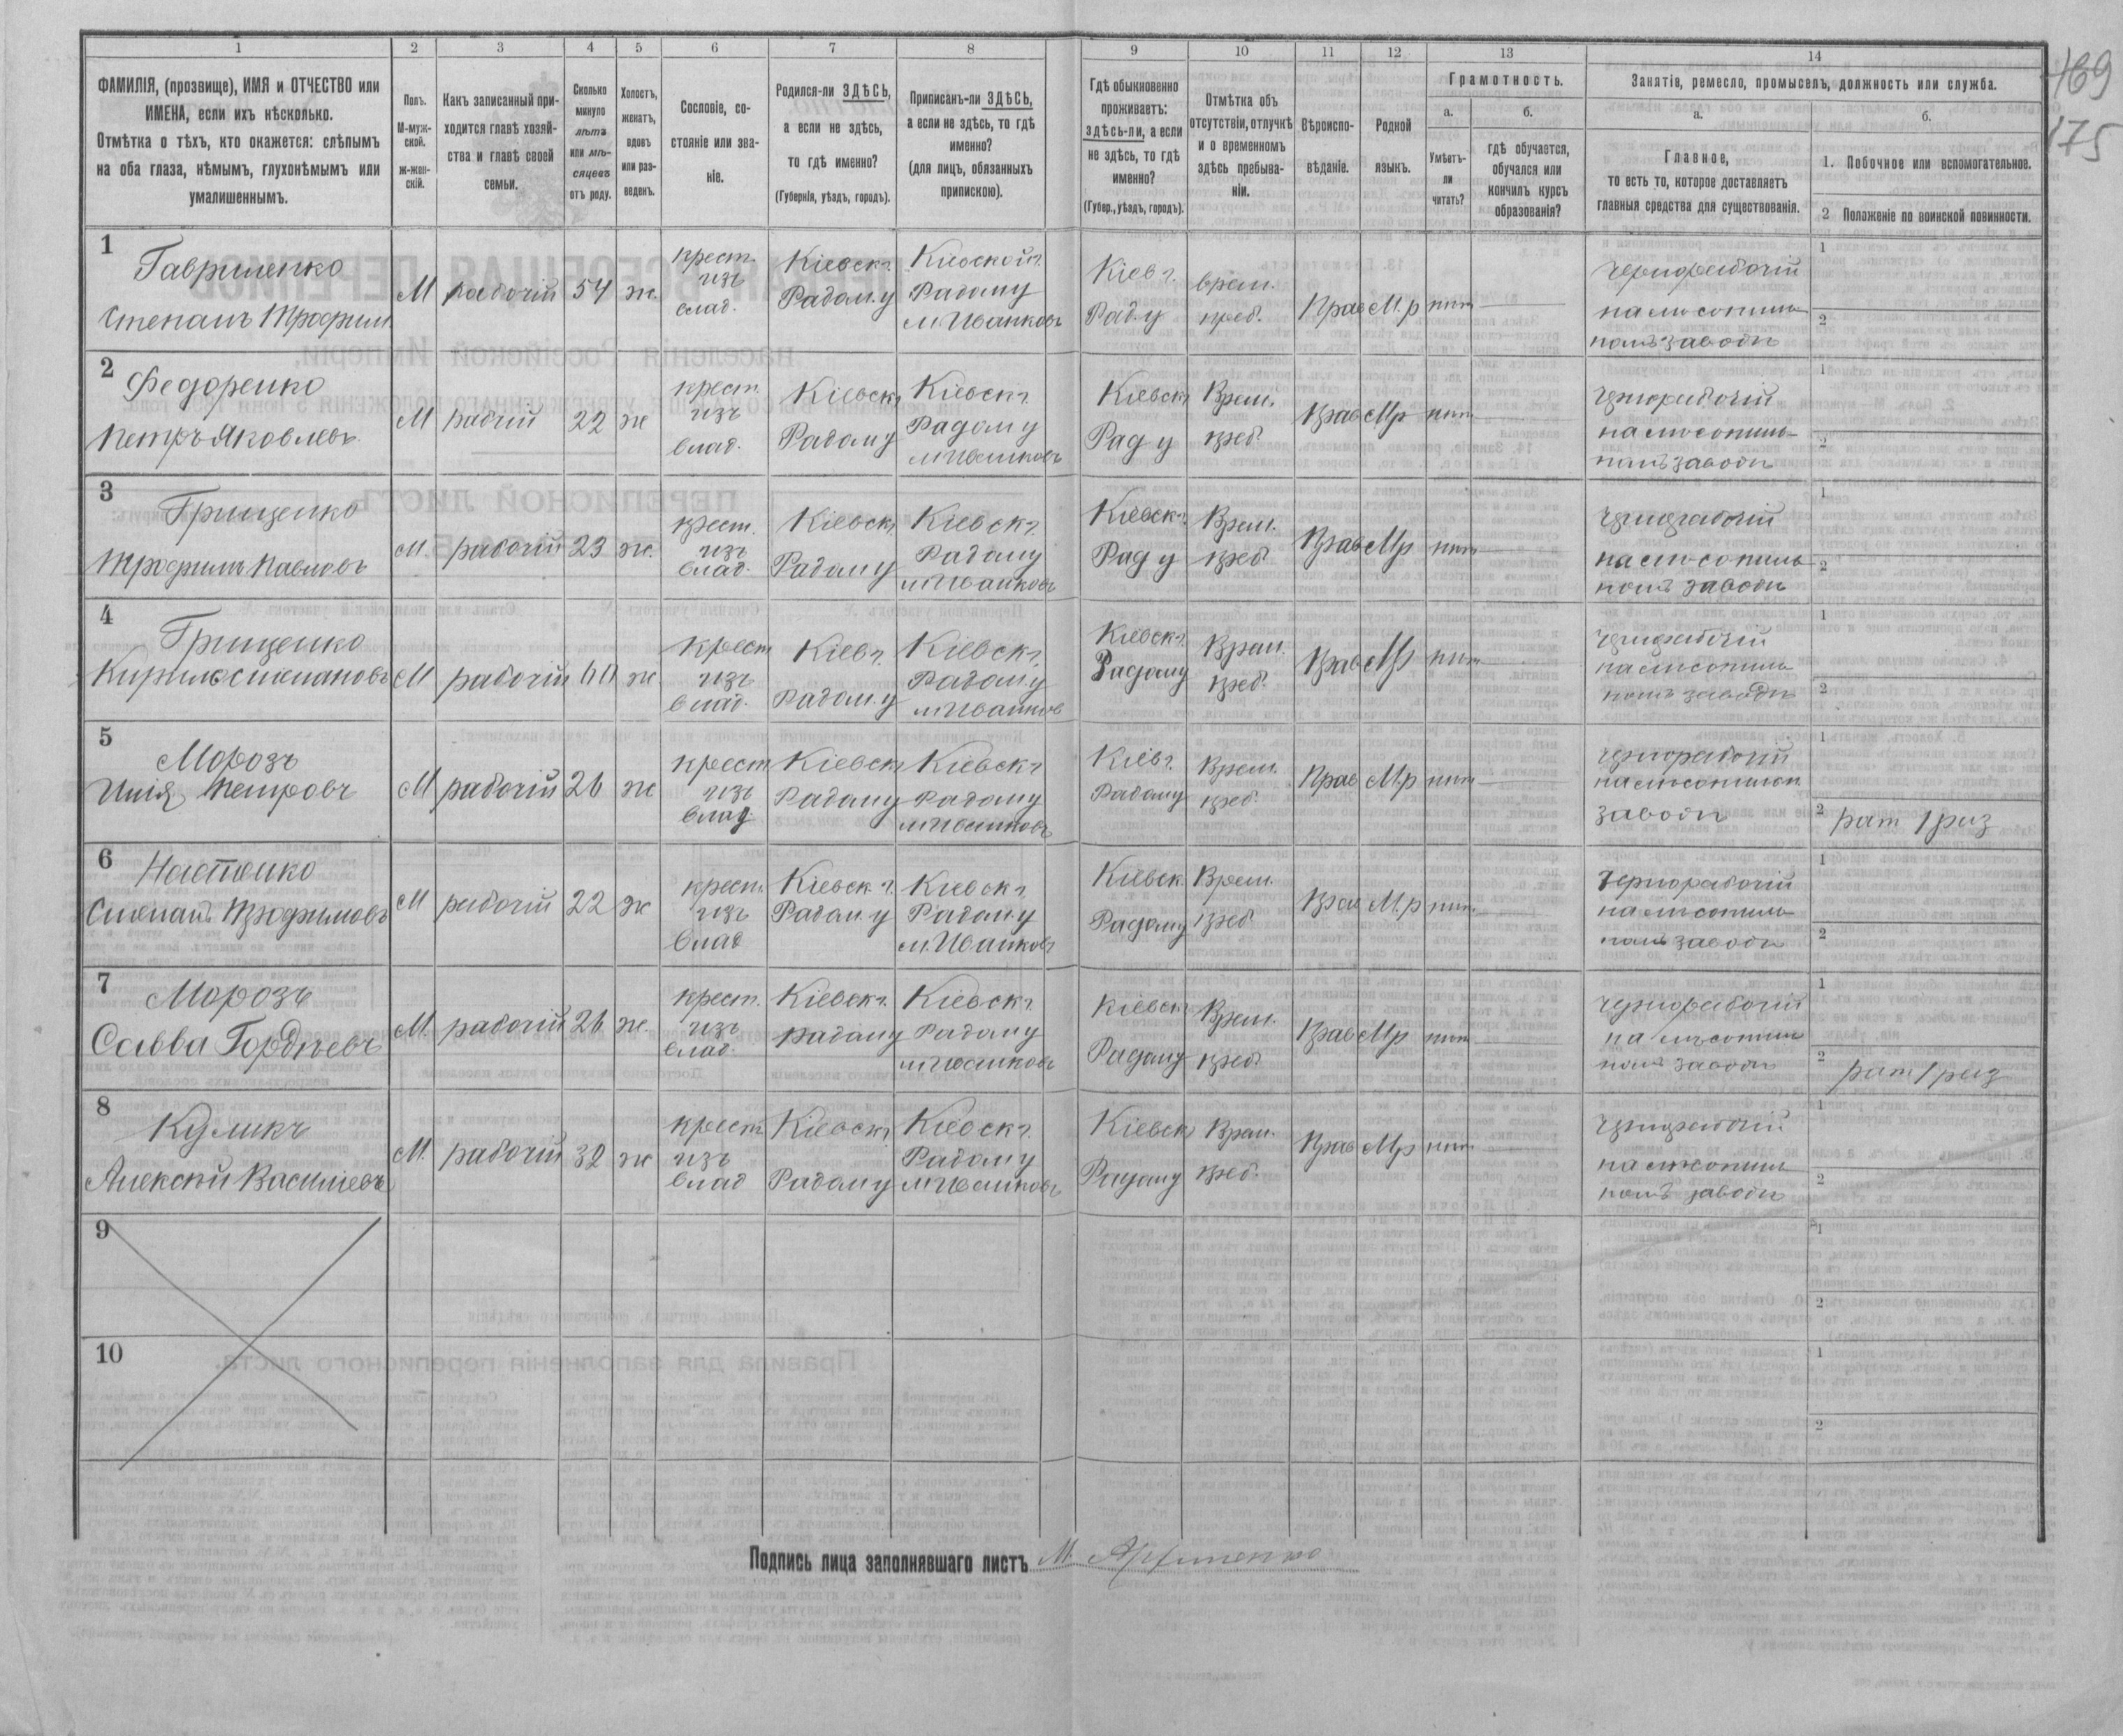 1 2 3 4 5 6 7 8 9 10 11 12 13 14
469
175
ФАМИЛІЯ, (прозвище), ИМЯ и ОТЧЕСТВО или
ИМЕНА, если ихъ нѣсколько.
Отмѣтка о тѣхъ, кто окажется: слѣпымъ
на оба глаза, нѣмымъ, глухонѣмымъ или
умалишеннымъ.
Полъ.
М-муж-
ской.
ж-жен-
скій.
Какъ записанный при-
ходится главѣ хозяй-
ства и главѣ своей
семьи.
Сколько
минуло
лѣтъ
или мѣ-
сяцевъ
отъ роду.
Холостъ,
женатъ,
вдовъ
или раз-
веденъ.
Сословіе, со-
стояніе или зва-
ніе.
Родился-ли ЗДѢСЬ,
а если не здѣсь,
то гдѣ именно?
(Губернія, уѣздъ, городъ).
Приписанъ-ли ЗДѢСЬ,
а если не здѣсь, то гдѣ
именно?
(для лицъ, обязанныхъ
припискою).
Гдѣ обыкновенно
проживаетъ:
здѣсь-ли, а если
не здѣсь, то гдѣ
именно?
(Губер., уѣздъ, городъ).
Отмѣтка объ
отсутствіи, отлучкѣ
и о временномъ
здѣсь пребыва-
ніи.
Вѣроиспо-
вѣданіе.
Родной
языкъ.
Грамотность.
а.
Умѣетъ-
ли
читать?
б.
гдѣ обучается,
обучался или
кончилъ курсъ
образованія?
Занятіе, ремесло, промыселъ, должность или служба.
а.
Главное,
то есть то, которое доставляетъ
главныя средства для существованія.
б.
1. Побочное или вспомогательное.
2 Положеніе по воинской повинности.
1
Гавриленко
Степанъ Трофим.
М рабочій 54 ж.
крест.
изъ
влад.
Кіевск г.
Радом. у
Кіевской г.
Радому
м Иванковъ
Кіев г.
Рад. у
врем.
преб.
Прав М.р нит
чернорабочій
на лѣсопиль
номъ заводѣ
1
2
2
Федоренко
Петръ Яковлевъ
М рабчій 22 ж
крест.
изъ
влад.
Кіевск г
Радом у
Кіевск г.
Радом у
м Иванковъ
Кіевск г
Рад у
Врем.
преб.
Прав Мр нит
чнорабочій
на лѣсопиль
номъ заводѣ
1
2
3
Грищенко
Трофимъ Павловъ
М. рабочій 23 ж.
крест.
изъ
влад.
Кіевск г
Радом у
Кіевск г.
Радому
м Иванковъ
Кіевск г.
Рад у
Врем.
преб
Прав Мр нит
чернорабочій
на лѣсопиль
номъ заводѣ
1
2
4
Грищенко
Кирилъ Степановъ
М рабочій 40 ж.
крест
изъ
влад.
Кіев г.
Радом. у
Кіевск г.
Радом. у
м Иванков
Кіевск г.
Радому
Врем.
преб.
Прав Мр нит
чернорабочій
на лѣсопиль
номъ заводѣ
1
2
5
Морозъ
Илія Петровъ
М рабочій 26 ж
крест
изъ
влад.
Кіевск г
Радому
Кіевск г
Радому
м Иванковъ
Кіев г.
Радому
Врем.
преб.
Прав М.р нит
чернорабочій
на лѣсопильн.
заводѣ
1
2 рат 1 раз
6
Настенко
Степанъ Трофимовъ
М рабочій 22 ж
крест.
изъ
влад
Кіевск г.
Радом. у
Кіевск г.
Радом. у
м. Иванковъ
Кіевск.
Радому
Врем.
преб.
Прав М.р нит
Чернорабочій
на лѣсопиль
номъ заводѣ
1
2
7
Морозъ
Савва Гордѣевъ
М. рабочій 26 ж.
крест.
изъ
влад.
Кіевск г.
Радому
Кіевск г.
Радому
м Иванковъ
Кіевск г
Радому
Врем.
преб.
Прав Мр нит
чернорабочій
на лѣсопиль
номъ заводѣ
1
2 рат 1 раз
8
Куликъ
Алексѣй Василіевъ
М. рабочій 32 ж
крест
изъ
влад
Кіевск г
Радом у
Кіевск г.
Радому
м Иванковъ
Кіевск
Радому
Врем.
преб.
Прав Мр нит
чернорабочій
на лѣсопиль
номъ заводѣ
1
2
9
1
2
10
1
2
Подпись лица заполнявшаго листъ М